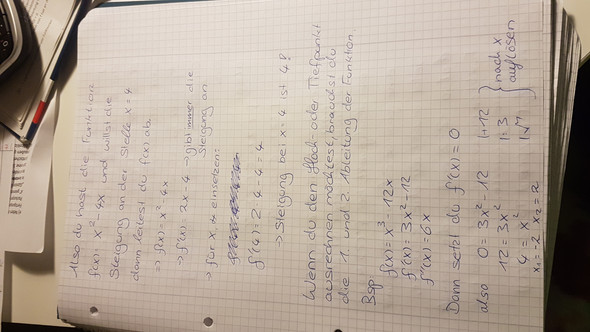 Also du hast die Funktion
f(x) = x² - 4x und willst die
Steigung an der Stelle x = 4
dann leitest du f(x) ab.
⇒ f(x) = x² - 4x
→ f'(x) = 2x - 4 → gibt immer die
Steigung an
→ für x, 4 einsetzen:
f'(4) = 2·4 - 4 = 4
→ Steigung bei x = 4 ist 4!
Wenn du den Hoch- oder Tiefpunkt
ausrechnen möchtest, brauchst du
die 1. und 2. Ableitung der Funktion
Bsp f(x) = x³ - 12x
f'(x) = 3x² - 12
f''(x) = 6x
Dann setzt du f'(x) = 0
also 0 = 3x² - 12 |+12
12 = 3x² |:3
4 = x² |√
x₁ = -2 x₂ = 2
} nach x
auflösen